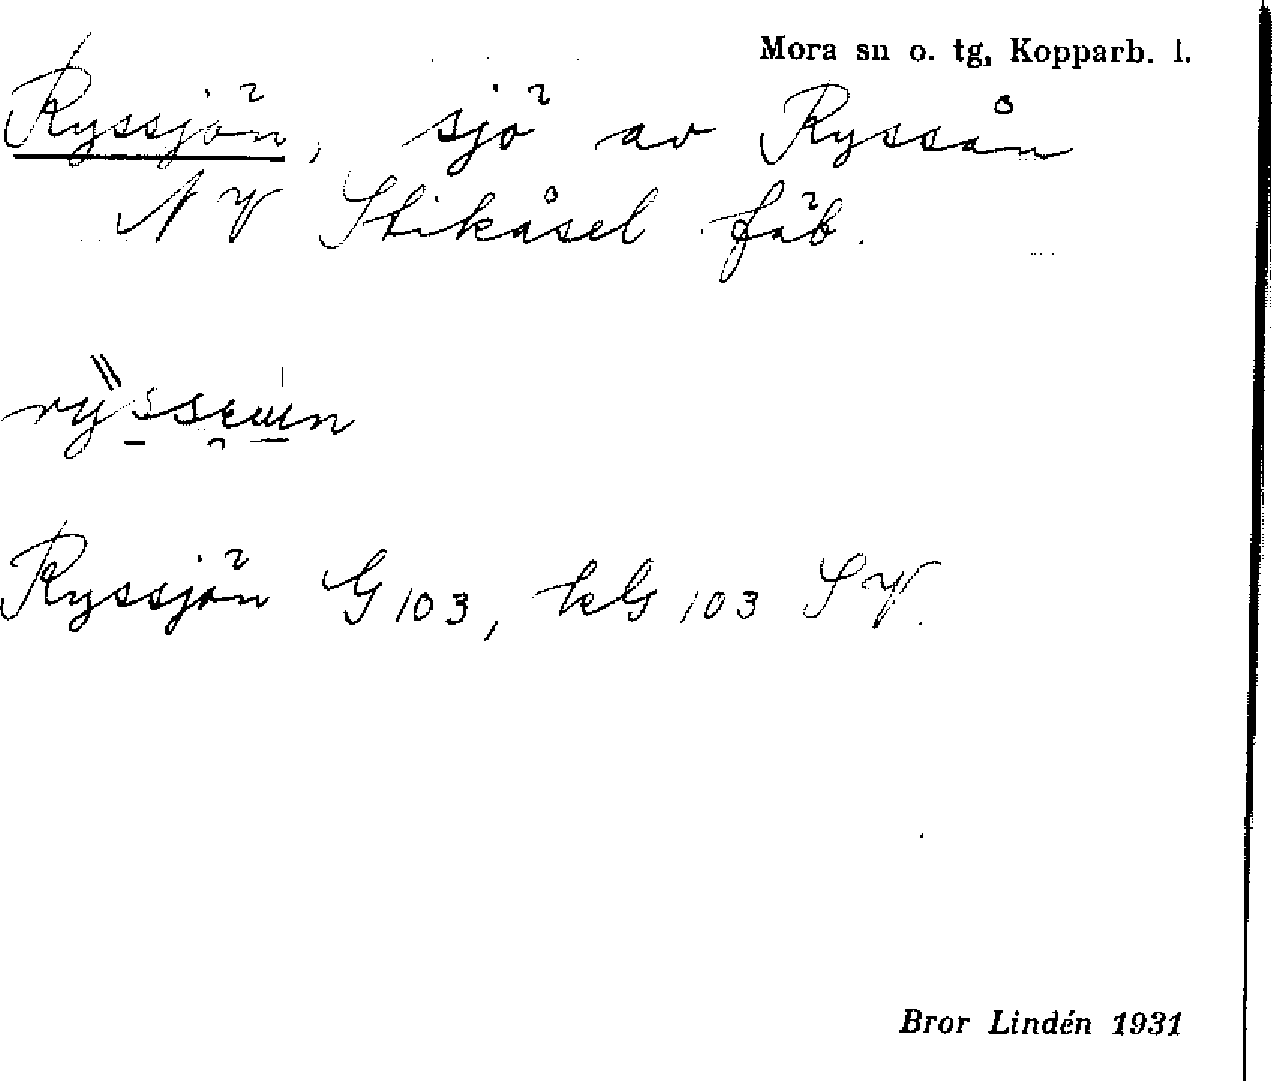 Mora sn o. tg, Kopparb. l.
Ryssjön, sjö av Ryssån
NV Stikåsel fäb.
Ryssjön G 103, kG 103 SV.
Bror Lindén 1931